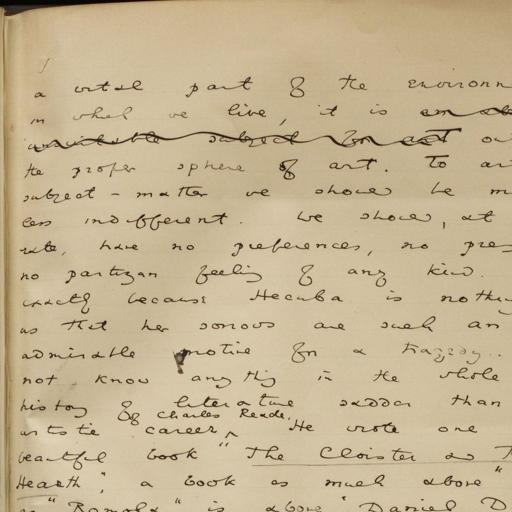 a vital part of the environm
in which we live, it is
unsuitable subject for art ou
the proper sphere of art. To ar
subject-matter we should be m
less indifferent. We should, at
rate, have no preferences, no prej
no partizan feeling of any kind.
exactly because Hecuba is nothing
us that her sorrows are such an
admirable motive for a tragedy..
not know anything in the whole
history of literature sadder than
artistic career of Charles Reade. He wrote one
beautiful book "The Cloister & T
Hearth", a book as much above "
as "Romola" is above "Daniel D